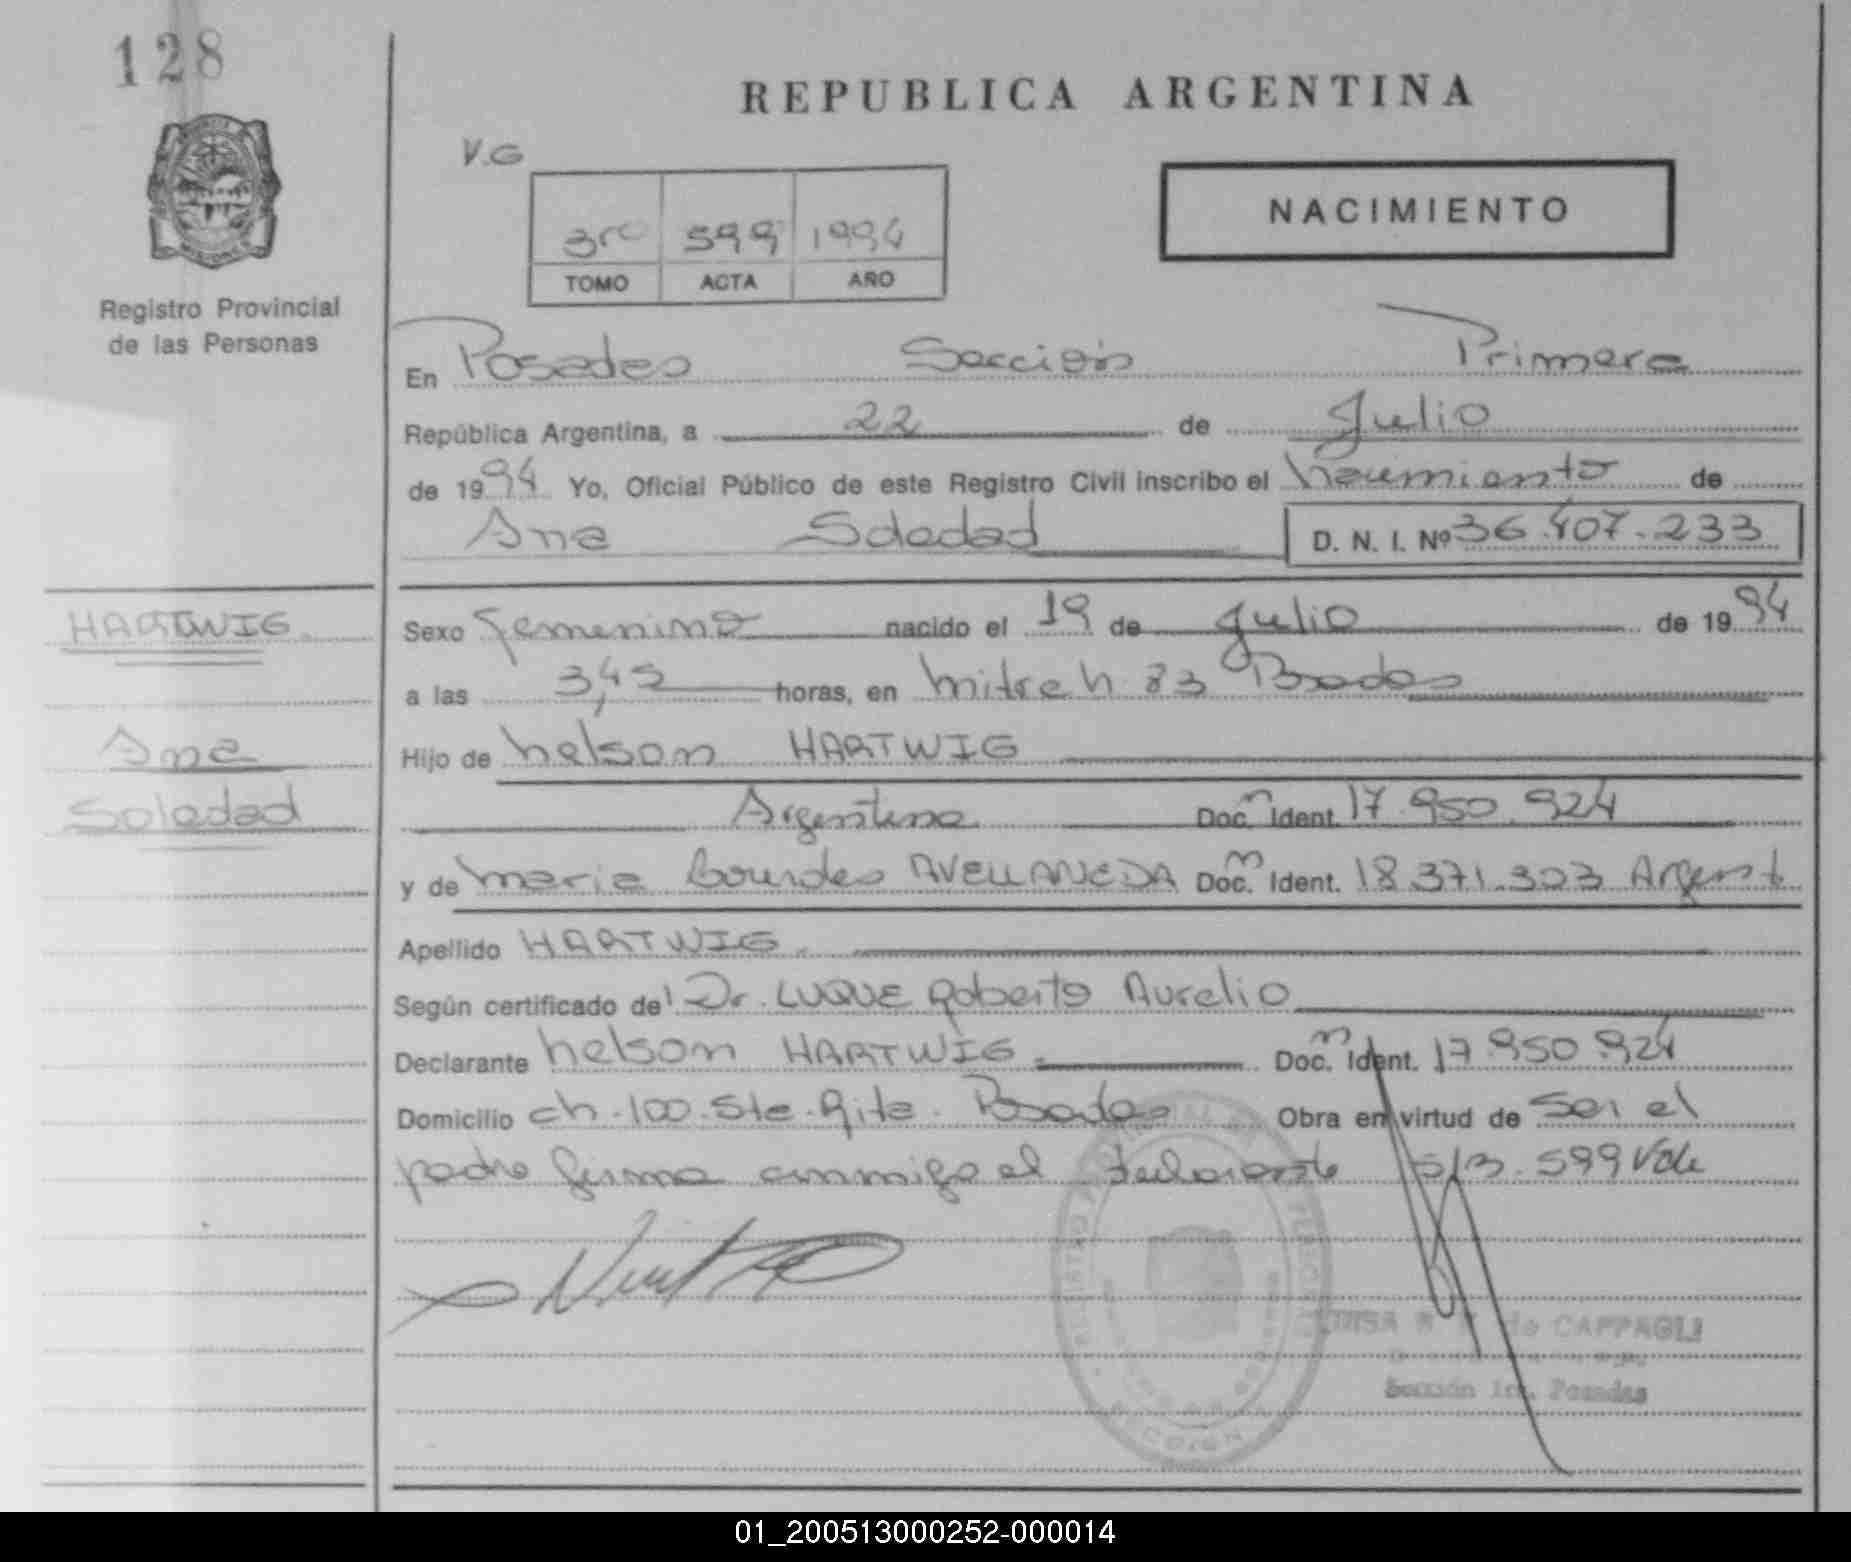 128
REPUBLICA ARGENTINA
V.G
NACIMIENTO
3ro 599 1994
TOMO ACTA AÑO
Registro Provincial
de las Personas
En Posadas Sección Primera
República Argentina, a 22 de Julio
de 1994 Yo, Oficial Público de este Registro Civil inscribo el nacimiento de
Ana Soledad D. N. I. Nº 36.407.233
HARTWIG
Sexo femenino nacido el 19 de Julio de 1994
a las 3,45 horas, en mitre n 83 Posadas
Ana
Hijo de nelson HARTWIG
Soledad
Argentina Doc. Ident. 17.950.924
y de maria Lourdes AVELLANEDA Doc. Ident. 18.371.303 Argent
Apellido HARTWIG
Según certificado del Dr. LUQUE Roberto Aurelio
Declarante nelson HARTWIG Doc. Ident. 17.950.924
Domicilio ch. 100. Sta. Rita. Posadas Obra en virtud de Ser el
padre firma conmigo el declarante s/B. 599 Vale
de CAPPAGLI
Sección 1ra. Posadas
01_200513000252-000014